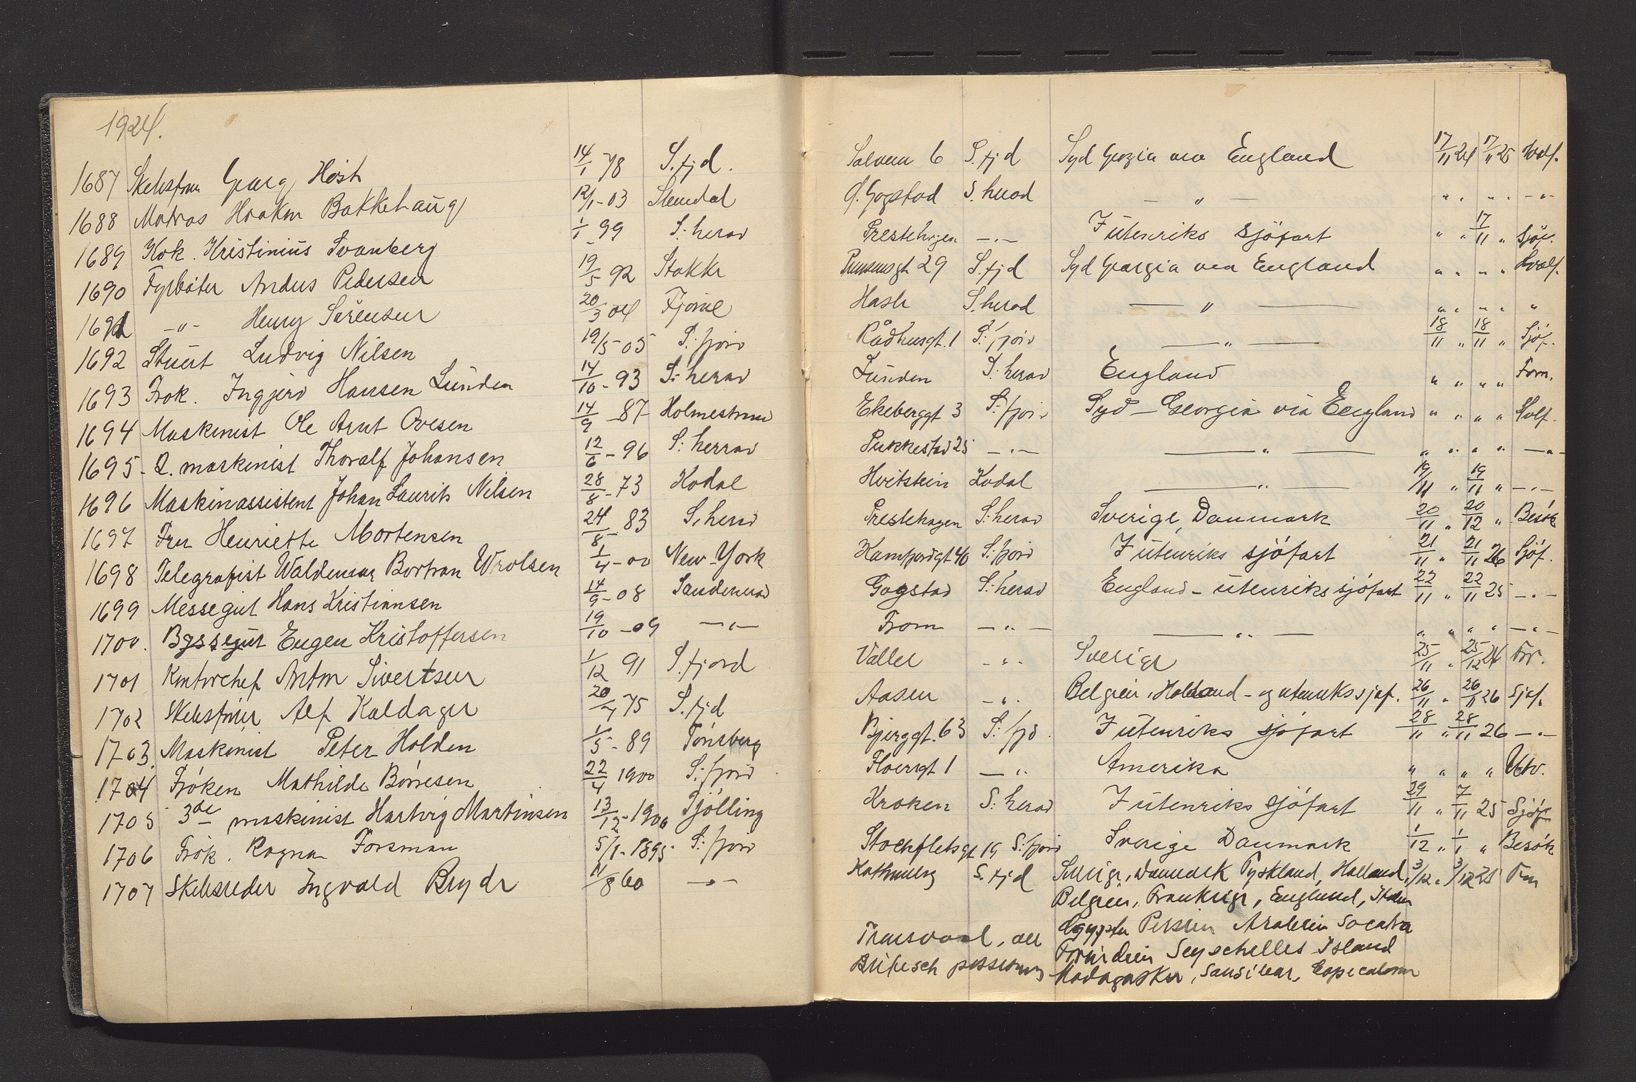 1924.
1687 Skibsfører Georg Høst 14/1 78 S.fjd. Solveien 6 S.fjd Syd Georgia via England 17/11 24 17/11 25 Hvalf.
1688 Matros Haakon Bakkehaug 12/1-03 Slemdal Gogstad S.herad — " — " " " " — " —
1689 Kok. Kristinius Svanberg 1/1-99 S.herad Prestehagen — " — I utenriks sjöfart " " 17/11 " Sjöf.
1690 Fyrbøter Anders Pedersen 19/5 92 Stokke 29 S.fjd Syd Georgia via England " " " " Hvalf.
1691 — " — Henry Sørensen 20/3 04 Fjorne Hasle S.herad — " — " " " " "
1692 Stuert Ludvig Nilsen 19/5-05 S.fjord Rådhusgt. 1 S.fjord — " — 18/11 " 18/11 " Sjöf.
1693 Frok. Ingjerd Hansen Lunden 14/10-93 S.herad Lunden S.herad England " " " " Forr.
1694 Maskinist Ole Arnt Ovesen 14/9-87 Holmestrand Ekebergt 3 S.fjord Syd-Georgia via England " " " " Hvalf.
1695- 2. maskinist Thoralf Johansen 12/6-96 S.herrad Pukkestad 25 — " — — " — " " " " — " —
1696 Maskinassistent Johan Laurits Nilsen 28/8-73 Kodal Hvitstein Kodal — " — 19/11 " 19/11 " — " —
1697 Fru Henriette Mortensen 24/8 83 S.herad Prestehagen S.herad Sverige, Danmark 20/11 " 20/12 " Besök
1698 Telegrafist Waldemar Bortran Wrolsen 1/4-00 New-York Kamfjordgt 46 S.fjord I utenriks sjöfart 21/11 " 21/11 26 Sjöf.
1699 Messegut Hans Kristiansen 14/9-08 Sandeherad Gogstad S.herad England - utenriks sjöfart 22/11 " 22/11 25 — " —
1700. Byssegut Eugen Kristoffersen 19/10-09 — " — From — " — — " — " " " " — " —
1701 Kontorchef Anton Sivertsen 1/12 91 S.fjord Valler — " — Sverige 25/11 " 25/12 24 Forr.
1702 Skibsfører Alf Kaldager 20/7 75 S.fjd Aasen — " — Belgien, Holland - og utenriks sjøf. 26/11 " 26/11 26 Sjöf.
1703. Maskinist Peter Holden 1/5-89 Tønsberg Bjerggt. 63 S.fjd. I utenriks sjöfart 28/11 " 28/11 26 — " —
1704 Frøken Mathilde Børresen 22/4 1900 S.fjord 1 — " — Amerika " " " " Utv.
1705 3de maskinist Hartvig Martinsen 13/12-1900 Tjølling Kroken S.herad I utenriks sjöfart 29/11 " 7/11 25 Sjöf
1706 Frøk. Ragna Forsman 5/1-1895 S.fjord Stockfletsgt 19 S.fjord Sverige Danmark 1/12 " 1/1 " Besök
1707 Skibsreder Ingvald Bryde 11/8 60 — " — S.fjd Sverige, Danmark Tyskland, Holland, 3/12 " 3/12 25 Forr
Belgien, Frankrige, England, Italien
Transvaal, Ægypten Persien Arabien
Forindien Seyschelles Island
Madagaskar, Sansibar,